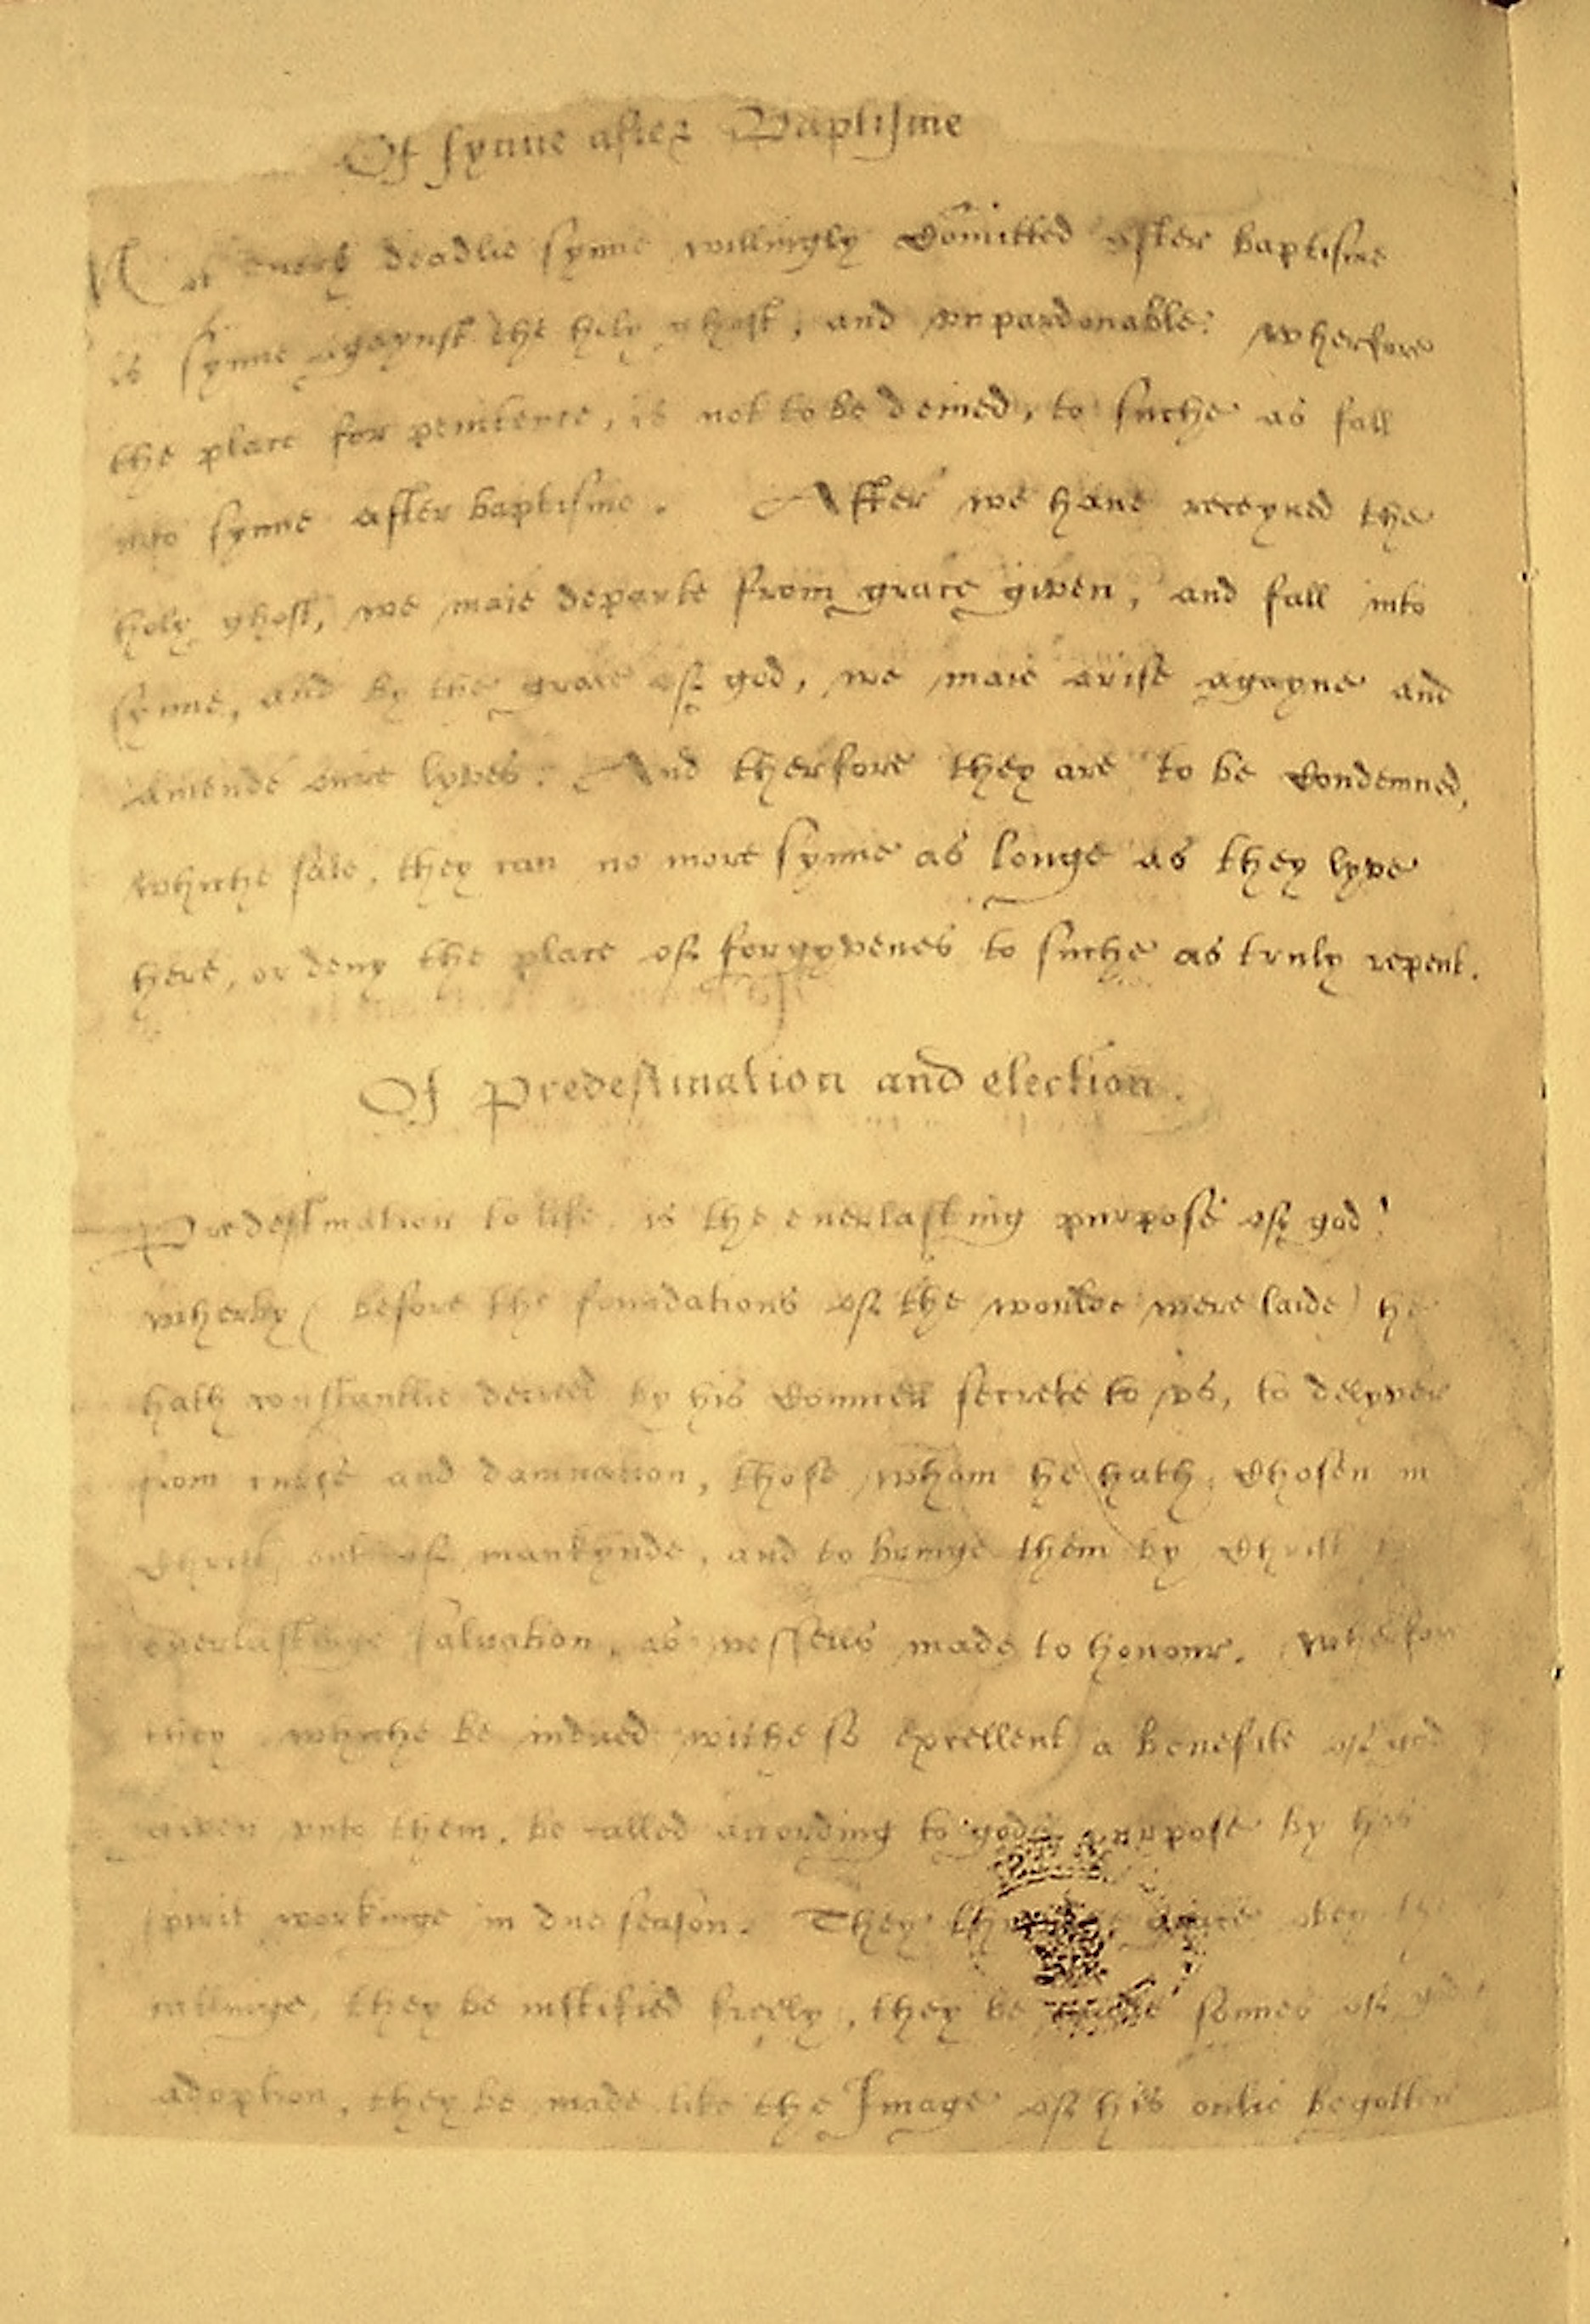 Of synne after Baptisme
Not euery deadlie synne willingly Comitted after baptisme
is synne agaynst the holy ghost, and vnpardonable: wherfore
the place for penitence, is not to be denied, to suche as fall
into synne after baptisme. After we haue receyued the
holy ghost, we maie departe from grace given, and fall into
synne, and by the grace of god, we maie arise agayne and
amende oure lyves. And therfore they are to be Condemned,
whiche saie, they can no more synne as longe as they lyve
here, or deny the place of forgyvenes to suche as truly repent.
Of Predestination and election.
Predestination to life, is the euerlasting purpose of god!
wherby (before the foundations of the worlde were laide) he
hath constantlie decreed by his Councell secrete to vs, to delyver
from curse and damnation, those whom he hath Chosen in
Christ out of mankynde, and to bringe them by Christ to
euerlastinge salvation, as vessells made to honour. Wherfor
they whiche be indued withe so excellent a benefite of god
given vnto them, be called according to gods purpose by his
spirit workinge in due season. They throughe grace obey the
callinge, they be iustified freely, they be made sonnes of god
adoption, they be made like the Image of his onlie begotten